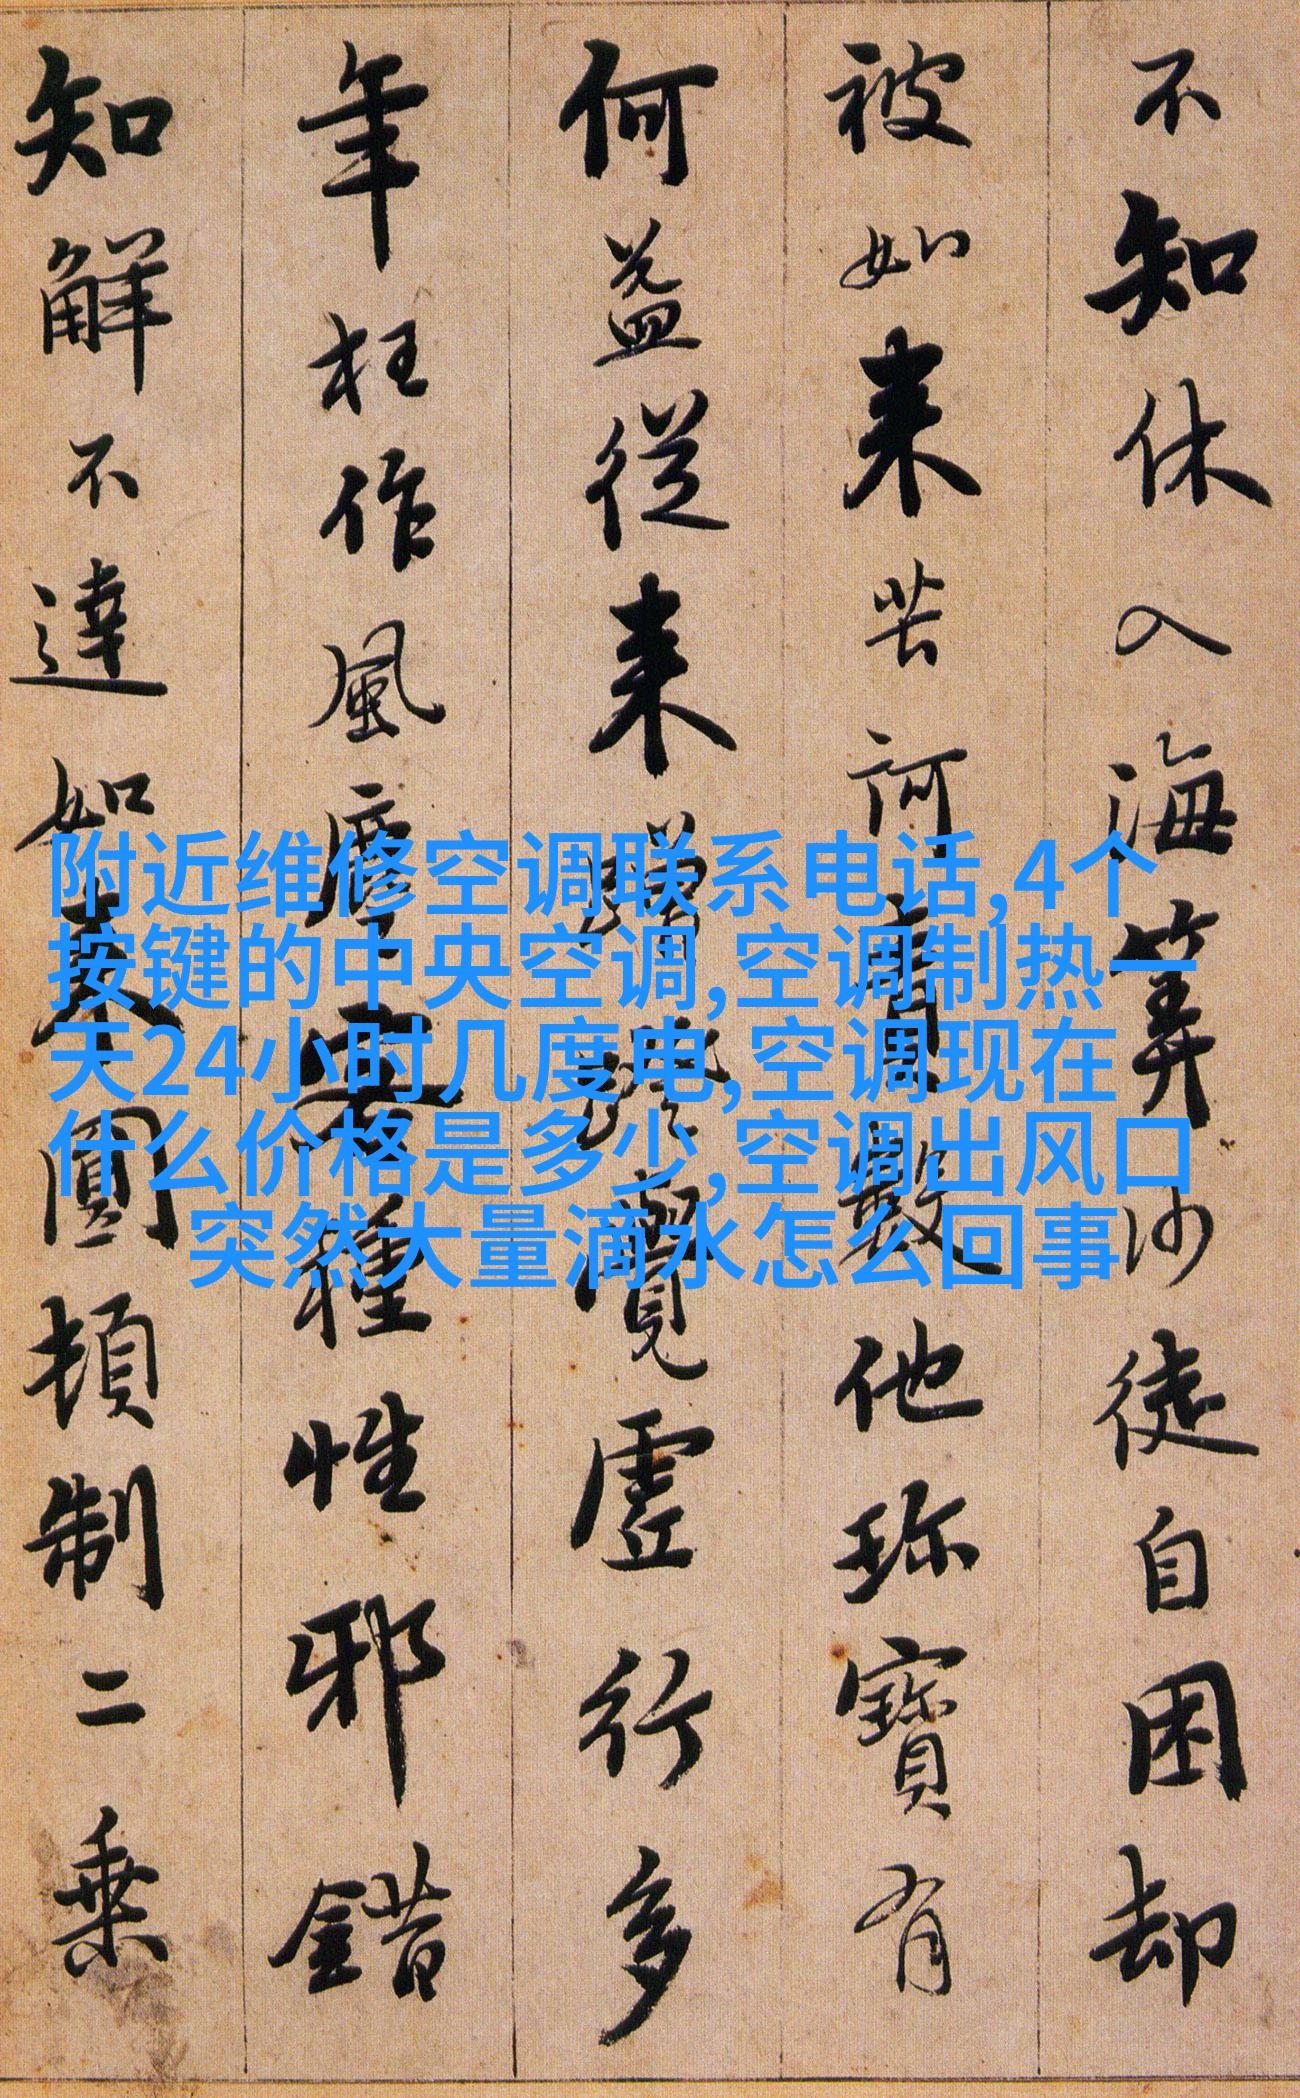 不知休入海筭沙徒自困却
被如来苦訶責數他珎寶有
何益從来蹭蹬覺虛行多
年枉作風塵客種性邪錯
知解不達如来圓頓制二乗
附近维修空调联系电话,4个
按键的中央空调,空调制热一
天24小时几度电,空调现在
什么价格是多少,空调出风口
突然大量滴水怎么回事